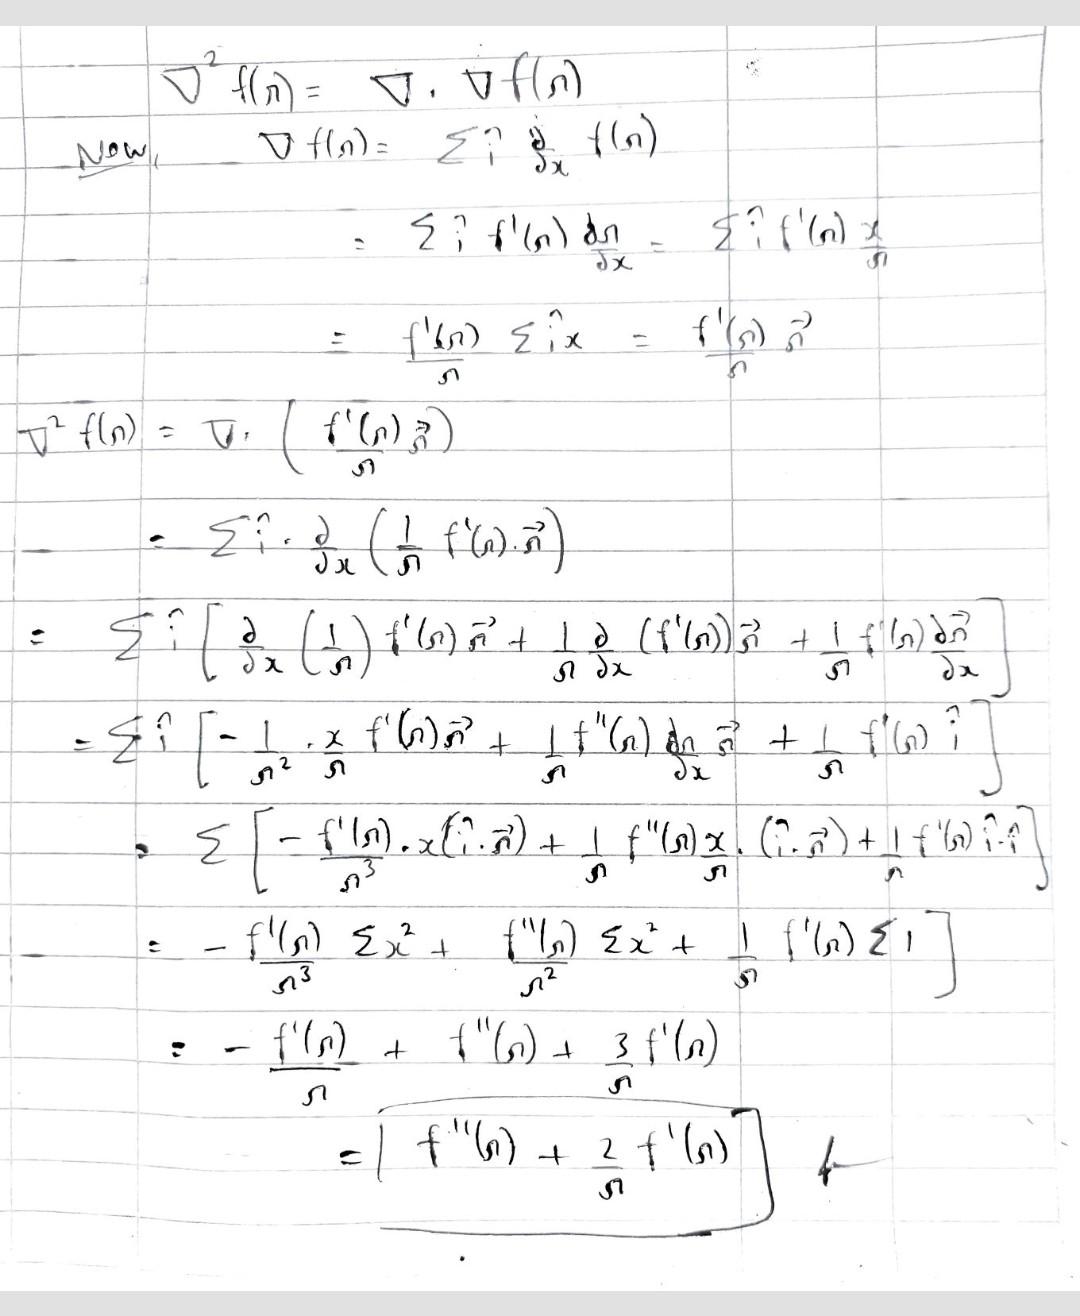 ∇² f(r) = ∇ . ∇ f(r)
Now, ∇ f(r) = Σ î ∂/∂x f(r)
= Σ î f'(r) ∂r/∂x = Σ î f'(r) x/r
= f'(r)/r Σ î x = f'(r)/r r⃗
∇² f(r) = ∇ . ( f'(r)/r r⃗ )
= Σ î . ∂/∂x ( 1/r f'(r) . r⃗ )
= Σ î [ ∂/∂x (1/r) f'(r) r⃗ + 1/r ∂/∂x (f'(r)) r⃗ + 1/r f'(r) ∂r⃗/∂x ]
= Σ î [ - 1/r² . x/r f'(r) r⃗ + 1/r f''(r) ∂r/∂x r⃗ + 1/r f'(r) î ]
= Σ [ - f'(r)/r³ . x (î . r⃗) + 1/r f''(r) x/r . (î . r⃗) + 1/r f'(r) î . î ]
= - f'(r)/r³ Σx² + f''(r)/r² Σx² + 1/r f'(r) Σ1 ]
= - f'(r)/r + f''(r) + 3/r f'(r)
= f''(r) + 2/r f'(r)